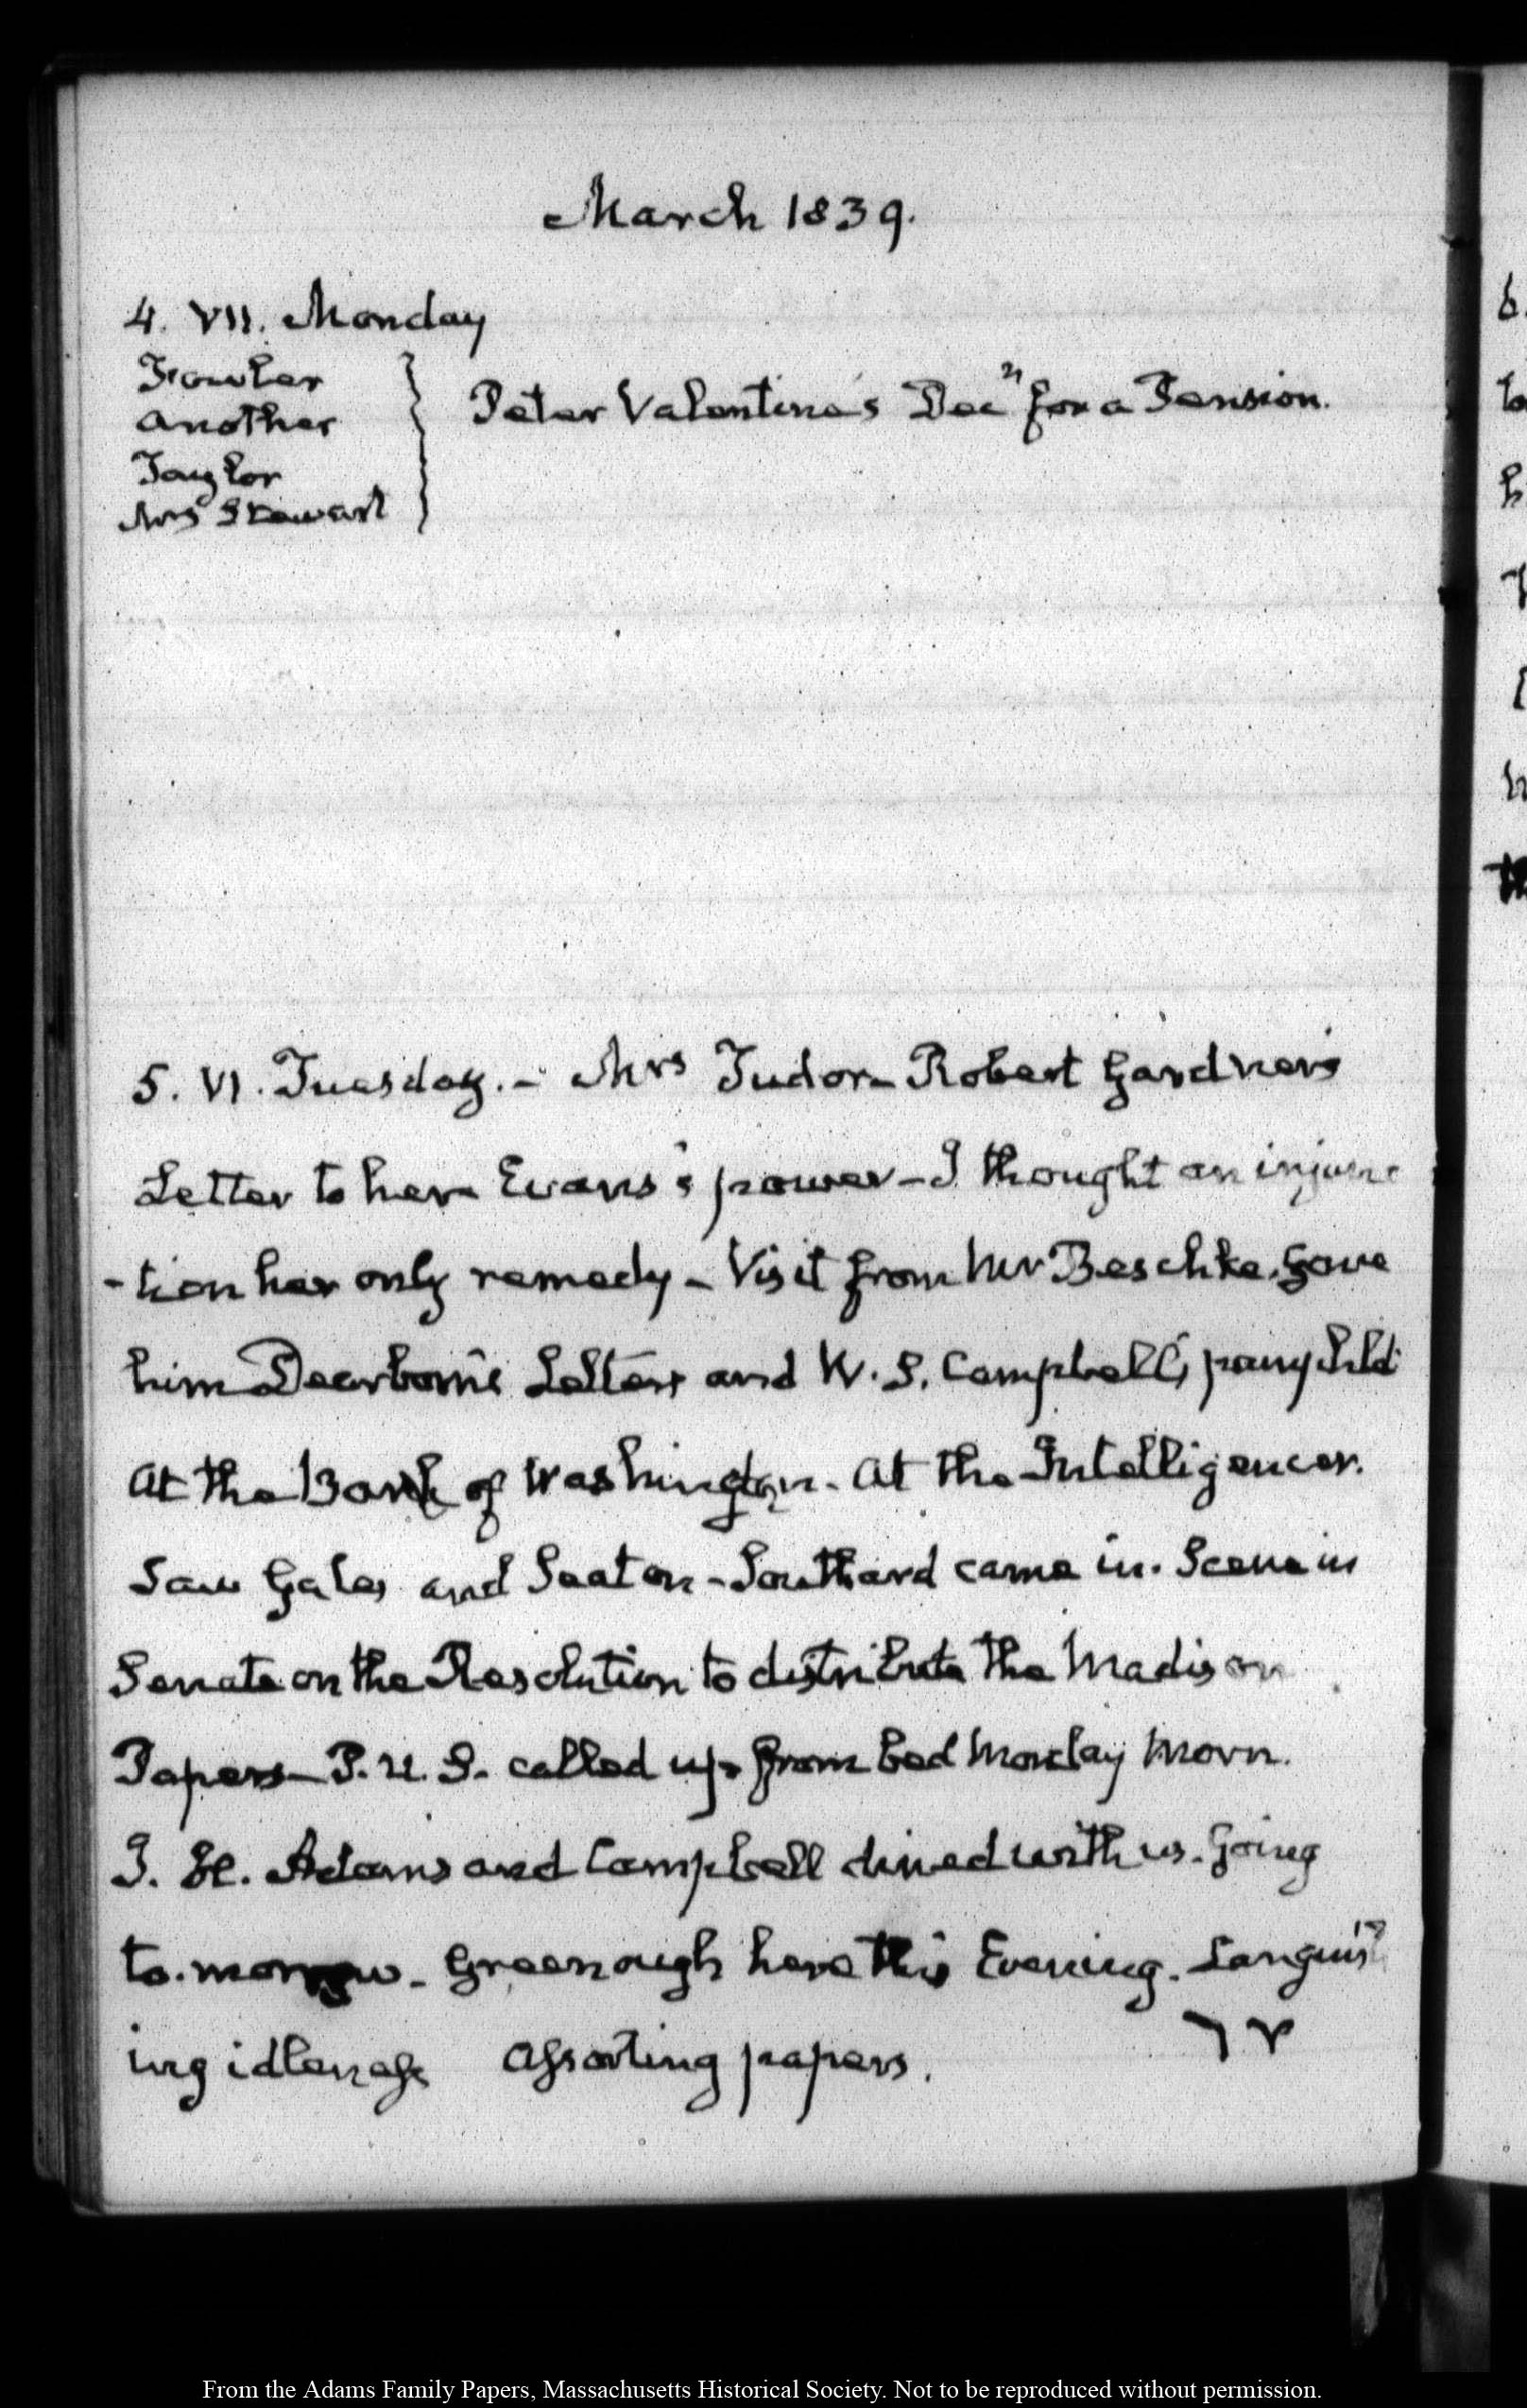 March 1839.
4. VII. Monday
Fowler
another
Taylor
Mrs Stewart
Peter Valentine's Decn for a Pension.
5. VI. Tuesday. - Mrs Tudor - Robert Gardner's
Letter to her - Evans's power - I thought an injunc
-tion her only remedy - Visit from Mr Beschke. Gave
him Dearborn's Letters and W. S. Campbell's
At the Bank of Washington. At the Intelligencer.
Saw Gales and Seaton - Southard came in. Scene in
Senate on the Resolution to distribute the Madison
Papers - P. U. S. called up from bed Monday Morn.
I. H. Adams and Campbell dined with us. Going
to-morrow - Greenough here this Evening. Languish
ing idleness assorting papers.
From the Adams Family Papers, Massachusetts Historical Society. Not to be reproduced without permission.